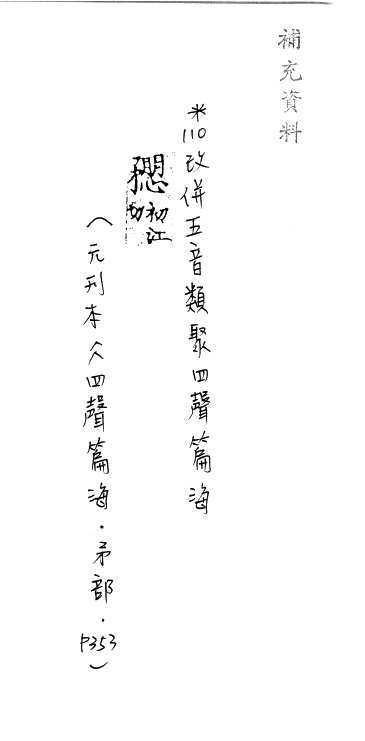 補充資料
*110改併五音類聚四聲篇海
初江切
(元刊本四聲篇海.矛部.P353)